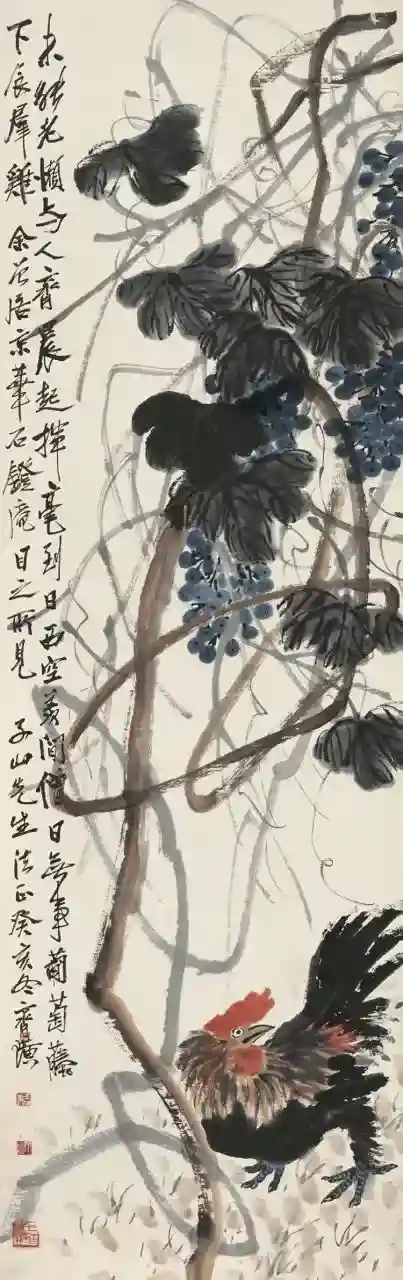 未能老懶与人齊晨起揮毫到日西空羨閒僧日無事葡萄藤
下食羣雞 余曾居京華石鐙庵日之所見 子山先生法正癸亥冬齊璜